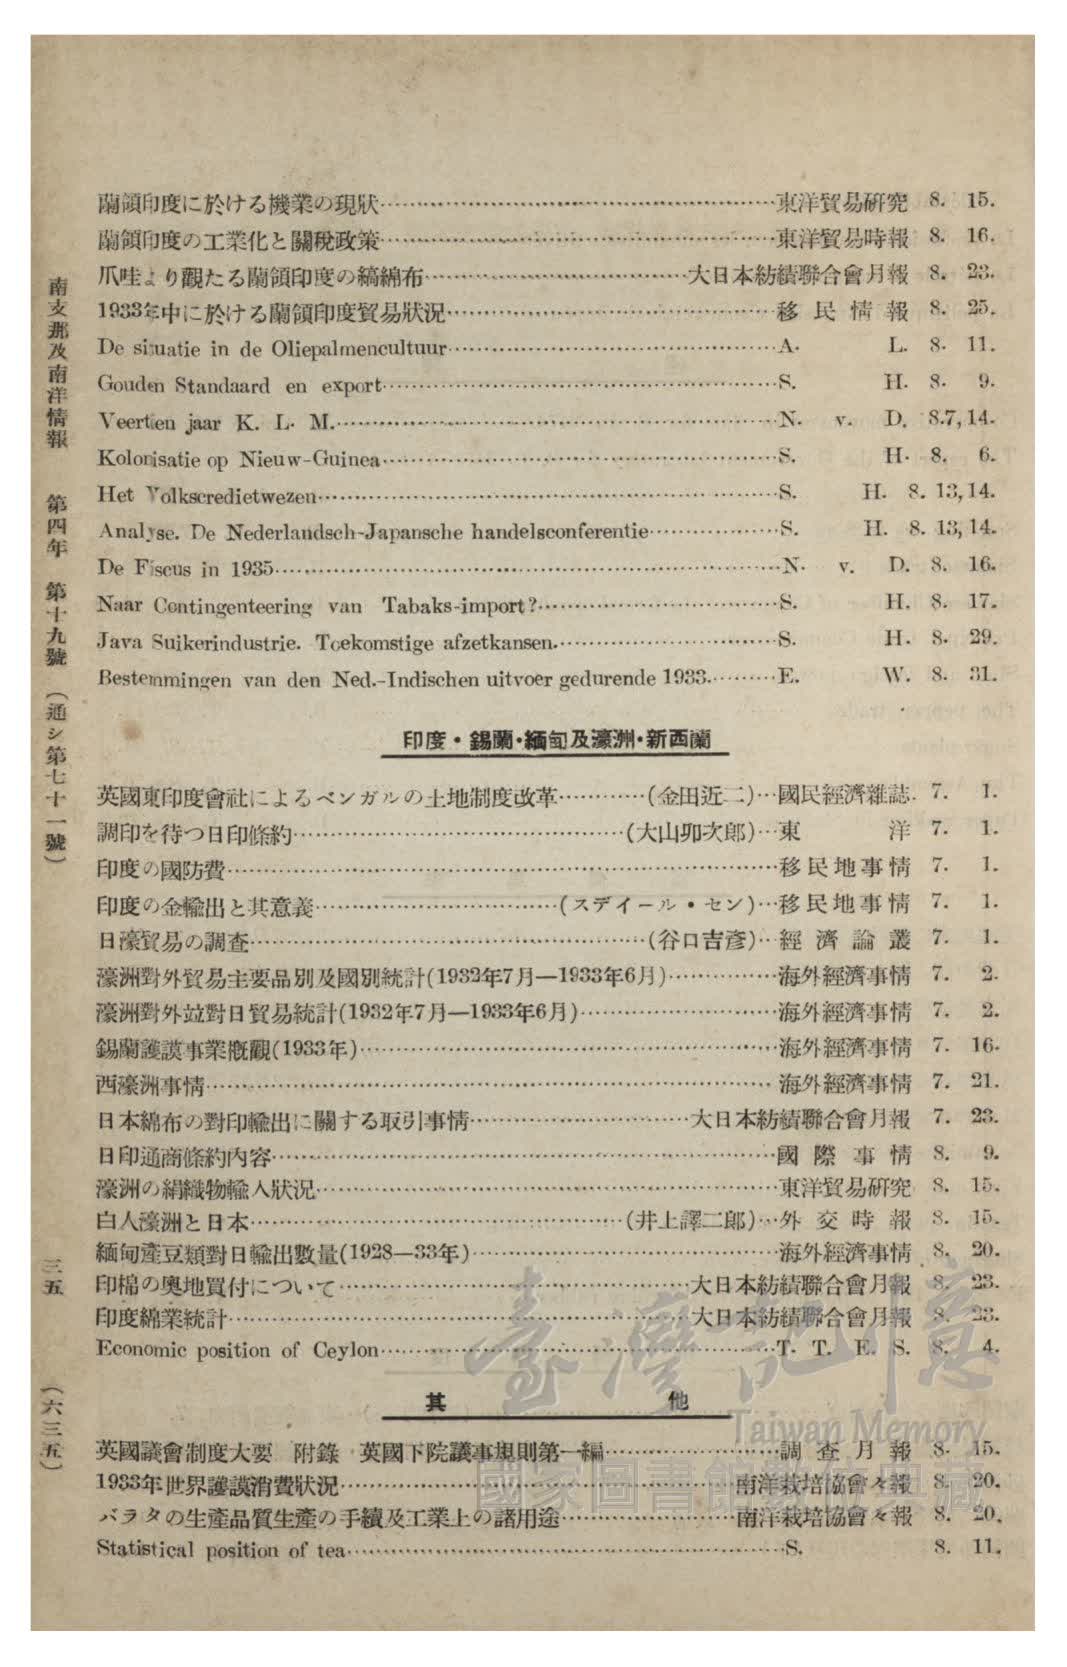 蘭領印度に於ける機業の現狀……東洋貿易硏究 8. 15.
蘭領印度の工業化と關稅政策……東洋貿易時報 8. 16.
爪哇より觀たる蘭領印度の縞綿布……大日本紡績聯合會月報 8. 23.
1933年中に於ける蘭領印度貿易狀況……移民情報 8. 25.
De situatie in de Oliepalmencultuur……A. L. 8. 11.
Gouden Standaard en export……S. H. 8. 9.
Veertien jaar K. L. M.……N. v. D. 8.7,14.
Kolonisatie op Nieuw-Guinea……S. H. 8. 6.
Het Volkscredietwezen……S. H. 8. 13,14.
Analyse. De Nederlandsch-Japansche handelsconferentie……S. H. 8. 13,14.
De Fiscus in 1935……N. v. D. 8. 16.
Naar Contingenteering van Tabaks-import?……S. H. 8. 17.
Java Suikerindustrie. Toekomstige afzetkansen.……S. H. 8. 29.
Bestemmingen van den Ned.-Indischen uitvoer gedurende 1933.……E. W. 8. 31.
印度・錫蘭・緬甸及濠洲・新西蘭
英國東印度會社によるベンガルの土地制度改革……(金田近二)…國民經濟雜誌. 7. 1.
調印を待つ日印條約……(大山卯次郎)…東洋 7. 1.
印度の國防費……移民地事情 7. 1.
印度の金輸出と其意義……(スデイール・セン)…移民地事情 7. 1.
日濠貿易の調査……(谷口吉彥)…經濟論叢 7. 1.
濠洲對外貿易主要品別及國別統計(1932年7月—1933年6月)……海外經濟事情 7. 2.
濠洲對外竝對日貿易統計(1932年7月—1933年6月)……海外經濟事情 7. 2.
錫蘭護謨事業槪觀(1933年)……海外經濟事情 7. 16.
西濠洲事情……海外經濟事情 7. 21.
日本綿布の對印輸出に關する取引事情……大日本紡績聯合會月報 7. 23.
日印通商條約內容……國際事情 8. 9.
濠洲の絹織物輸入狀況……東洋貿易硏究 8. 15.
白人濠洲と日本……(井上譯二郎)…外交時報 8. 15.
緬甸產豆類對日輸出數量(1928—33年)……海外經濟事情 8. 20.
印棉の奧地買付について……大日本紡績聯合會月報 8. 23.
印度綿業統計……大日本紡績聯合會月報 8. 23.
Economic position of Ceylon……T. T. E. S. 8. 4.
其他
英國議會制度大要 附錄 英國下院議事規則第一編……調查月報 8. 15.
1933年世界護謨消費狀況……南洋栽培協會々報 8. 20.
バラタの生產品質生產の手續及工業上の諸用途……南洋栽培協會々報 8. 20.
Statistical position of tea……S. 8. 11.
南支那及南洋情報 第四年 第十九號 (通シ第七十一號)
三五
(六三五)
臺灣記憶
Taiwan Memory
國家圖書館